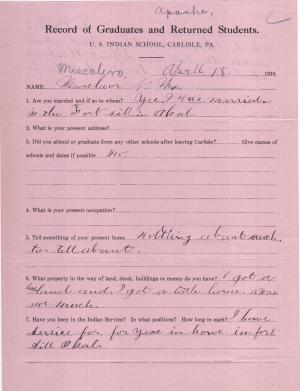 Apache,
Record of Graduates and Returned Students.
U. S. INDIAN SCHOOL, CARLISLE, PA.
Mescalero, April 18. 1910.
NAME
1. Are you married and if so to whom? Yes, I was married
in the Fort sill in Okal.
2. What is your present address?
3. Did you attend or graduate from any other schools after leaving Carlisle? Give names of
schools and dates if possible No.
4. What is your present occupation?
5. Tell something of your present home nothing about much
to tell about.
6. What property in the way of land, stock, buildings or money do you have? I got a
land and I got a little home
not much.
7. Have you been in the Indian Service? In what positions? How long in each? I have
service for for year in home in fort
sill Okal